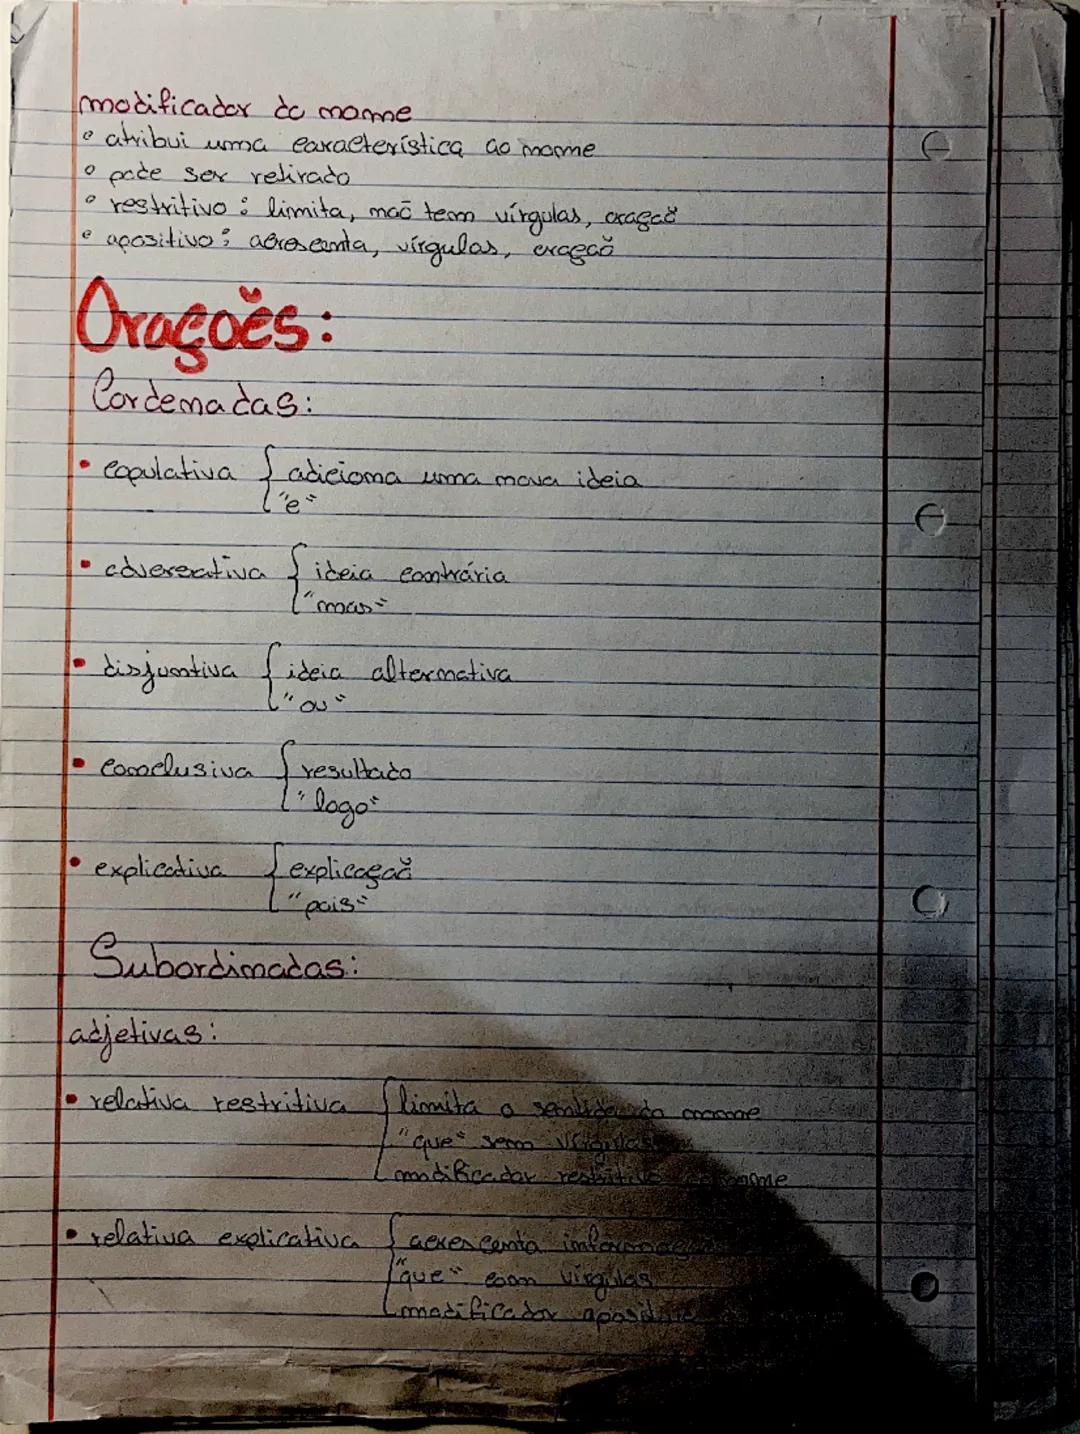 modificador do nome
° atribui uma característica ao nome
° pode ser retirado
° restritivo: limita, não tem vírgulas, oração
° apositivo: acrescenta, vírgulas, oração
Orações:
Cordenadas:
• copulativa { adiciona uma nova ideia
"e"
• adversativa { ideia contrária
"mas"
• disjuntiva { ideia alternativa
"ou"
• conclusiva { resultado
"logo"
• explicativa { explicação
"pois"
Subordinadas:
adjetivas:
• relativa restritiva { limita o sentido do nome
"que" sem vírgulas
modificador restritivo do nome
• relativa explicativa { acrescenta informação
"que" com vírgulas
modificador apositivo